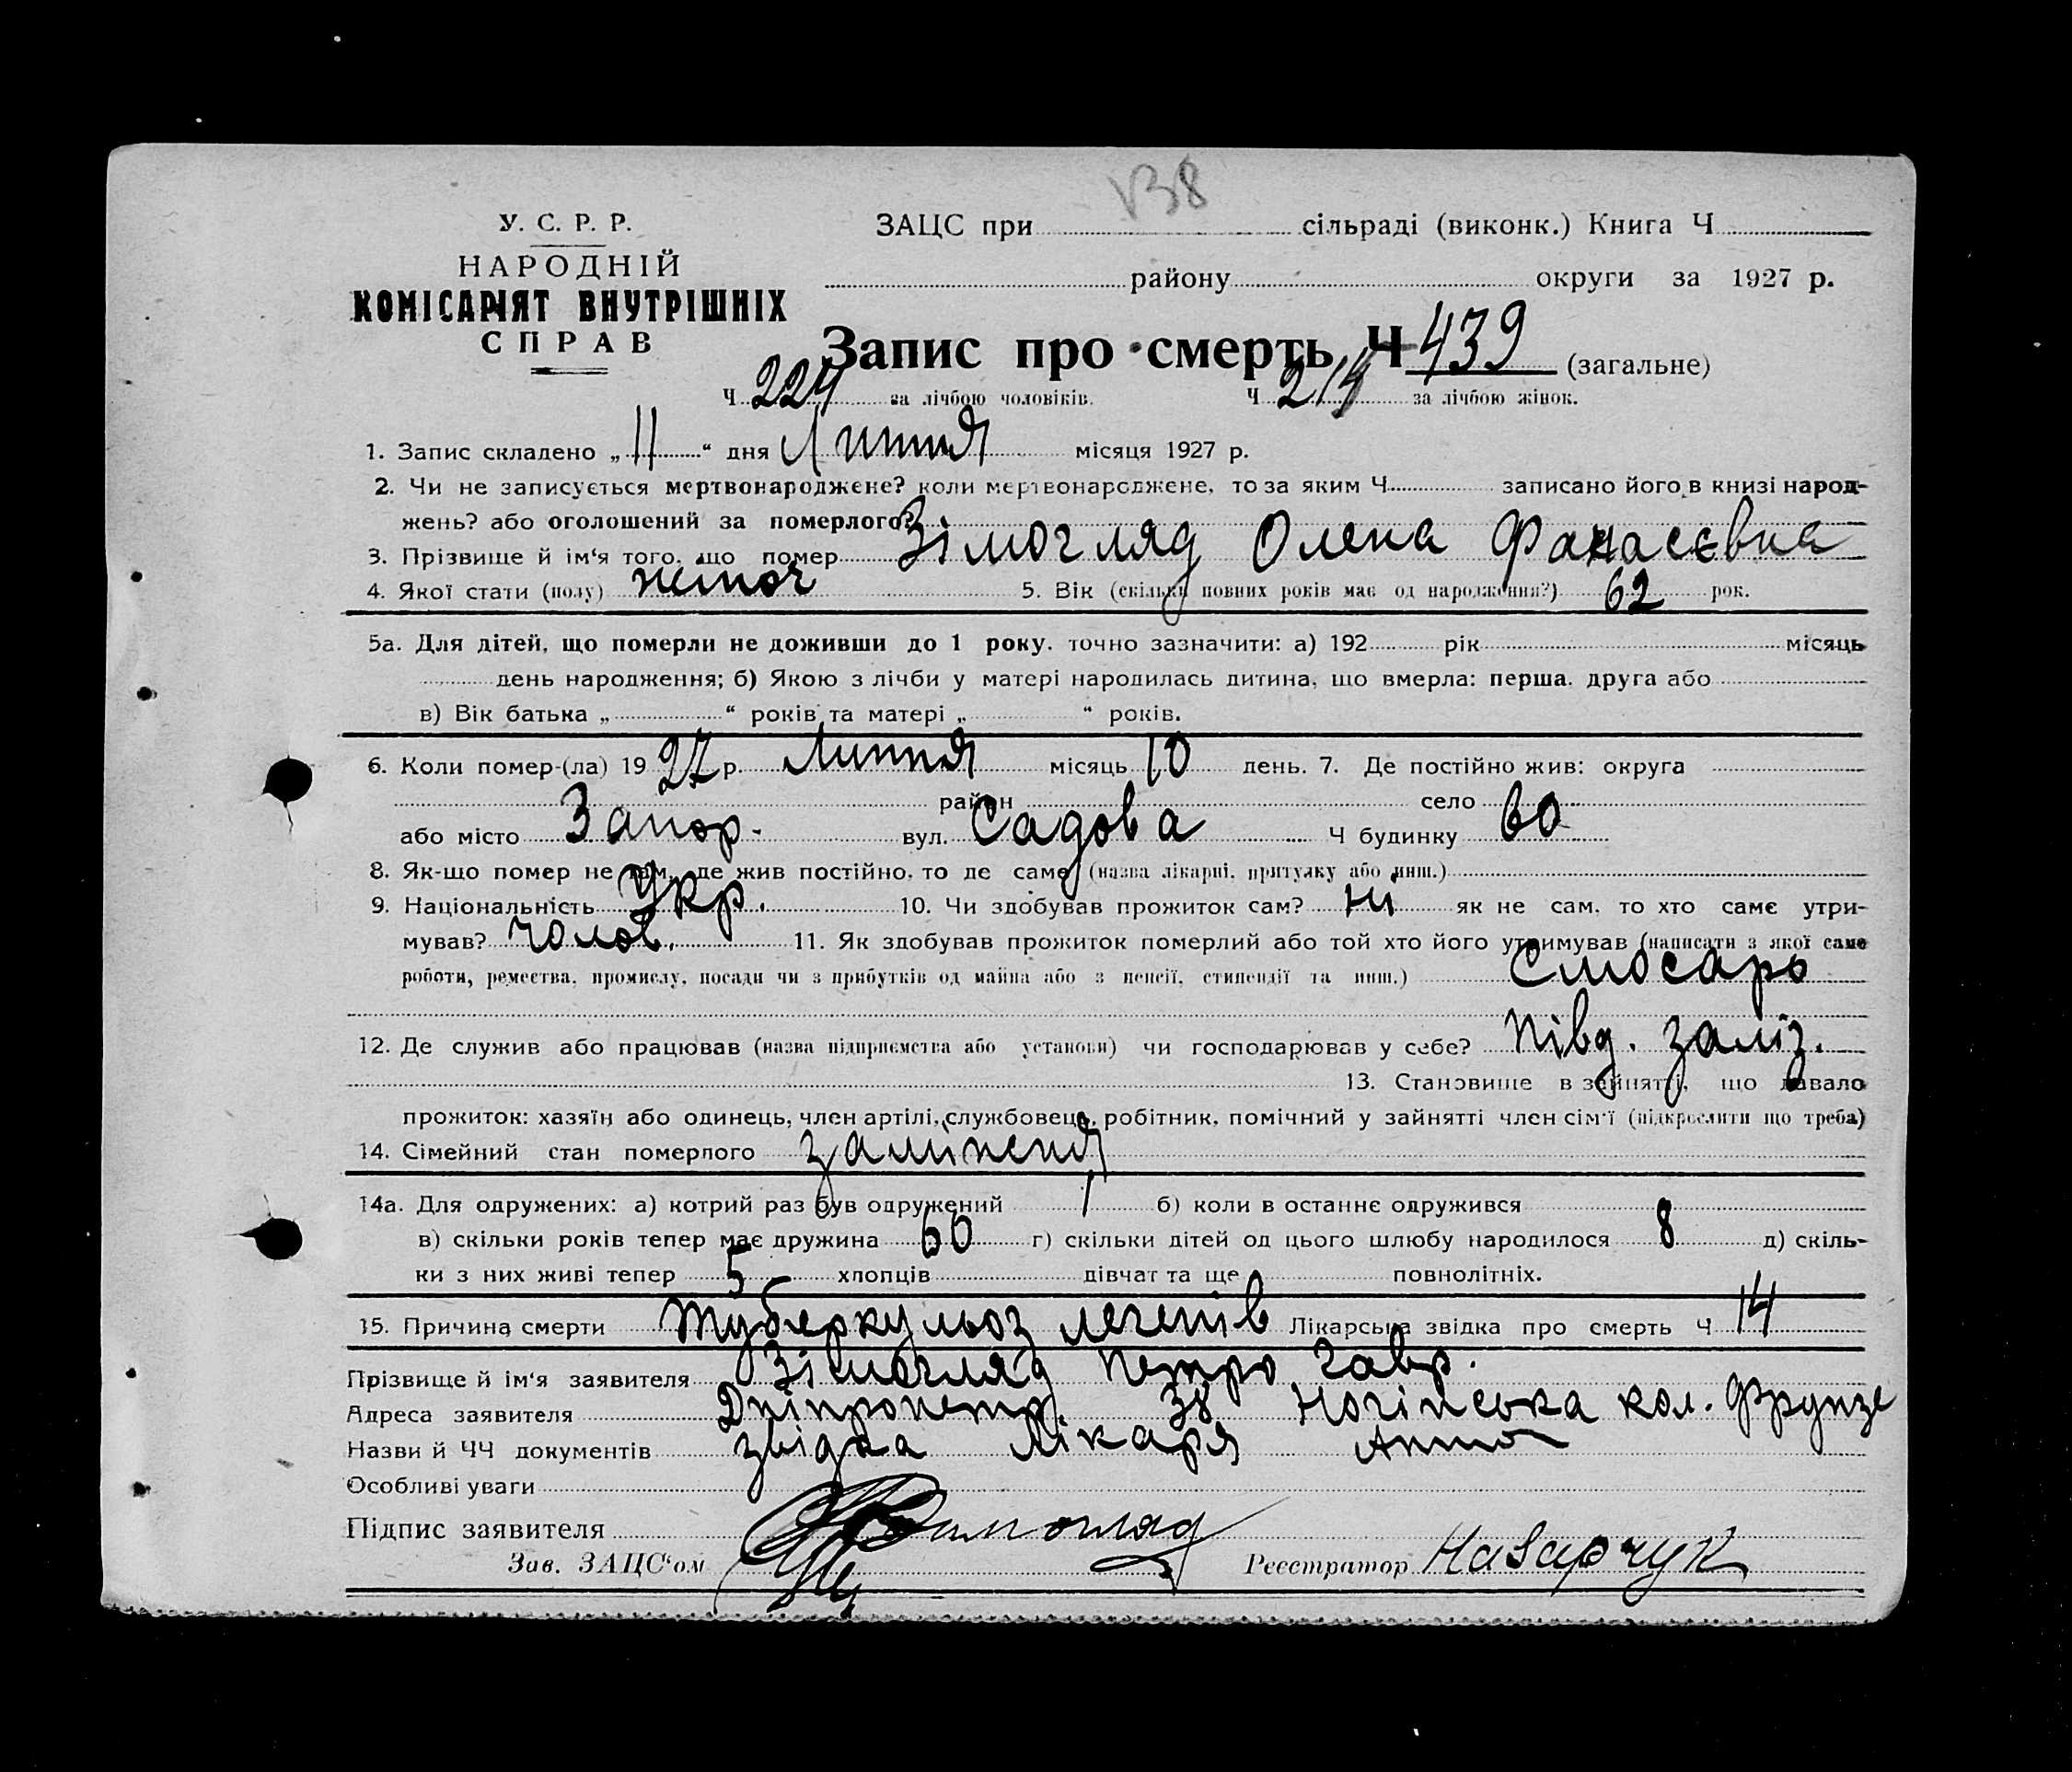 138
У. С. Р. Р.
НАРОДНІЙ
КОМІСАРІЯТ ВНУТРІШНІХ
СПРАВ
ЗАЦС при сільраді (виконк.) Книга Ч
району округи за 1927 р.
Запис про смерть Ч 439 (загальне)
Ч 224 за лічбою чоловіків. Ч 214 за лічбою жінок.
1. Запис складено „ 11 “ дня Липня місяця 1927 р.
2. Чи не записується мертвонароджене? коли мертвонароджене, то за яким Ч записано його в книзі народ-
жень? або оголошений за померлого?
3. Прізвище й ім‘я того, що помер Зімогляд Олена Фанасєвна
4. Якої стати (полу) жіноч 5. Вік (скільки повних років має од народження?) 62 рок.
5а. Для дітей, що померли не доживши до 1 року. точно зазначити: а) 192 рік місяць
день народження; б) Якою з лічби у матері народилась дитина, що вмерла: перша. друга або
в) Вік батька „ “ років та матері „ “ років.
6. Коли помер-(ла) 19 27 р. Липня місяць 10 день. 7. Де постійно жив: округа
район село
або місто Запор. вул. Садова Ч будинку 60
8. Як-що помер не там, де жив постійно, то де саме (назва лікарні, притулку або инш.)
9. Національність Укр. 10. Чи здобував прожиток сам? Ні як не сам, то хто саме утри-
мував? чолов. 11. Як здобував прожиток померлий або той хто його утримував (написати з якої саме
роботи, ремества, промислу, посади чи з прибутків од майна або з пенсії, стипендії та инш.) Слюсарь
12. Де служив або працював (назва підприємства або установи) чи господарював у себе? Півд. заліз.
13. Становище в зайнятті, що давало
прожиток: хазяїн або одинець, член артілі, службовець, робітник, помічний у зайнятті член сім'ї (підкреслити що треба)
14. Сімейний стан померлого заміжня
14а. Для одружених: а) котрий раз був одружений 1 б) коли в останнє одружився
в) скільки років тепер має дружина 60 г) скільки дітей од цього шлюбу народилося 8 д) скіль-
ки з них живі тепер 5 хлопців дівчат та ще повнолітніх.
15. Причина смерти Туберкульоз легенів Лікарська звідка про смерть Ч 14
Прізвище й ім'я заявителя Зімогляд Петро Гавр.
Адреса заявителя Дніпропетр. 38 Ногінська кол. Фрунзе
Назви й ЧЧ документів звідка Лікаря
Особливі уваги
Підпис заявителя Зимогляд
Зав. ЗАЦС‘ом Реєстратор Назарчук